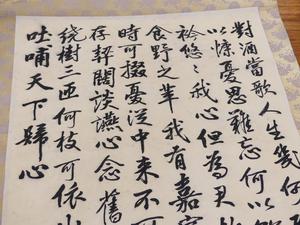 對酒當歌人生幾何
以慷憂思難忘何以
衿悠〻我心但為君
食野之苹我有嘉賓
時可掇憂從中来不可
存契闊談讌心念舊
繞樹三匝何枝可依山
吐哺天下歸心